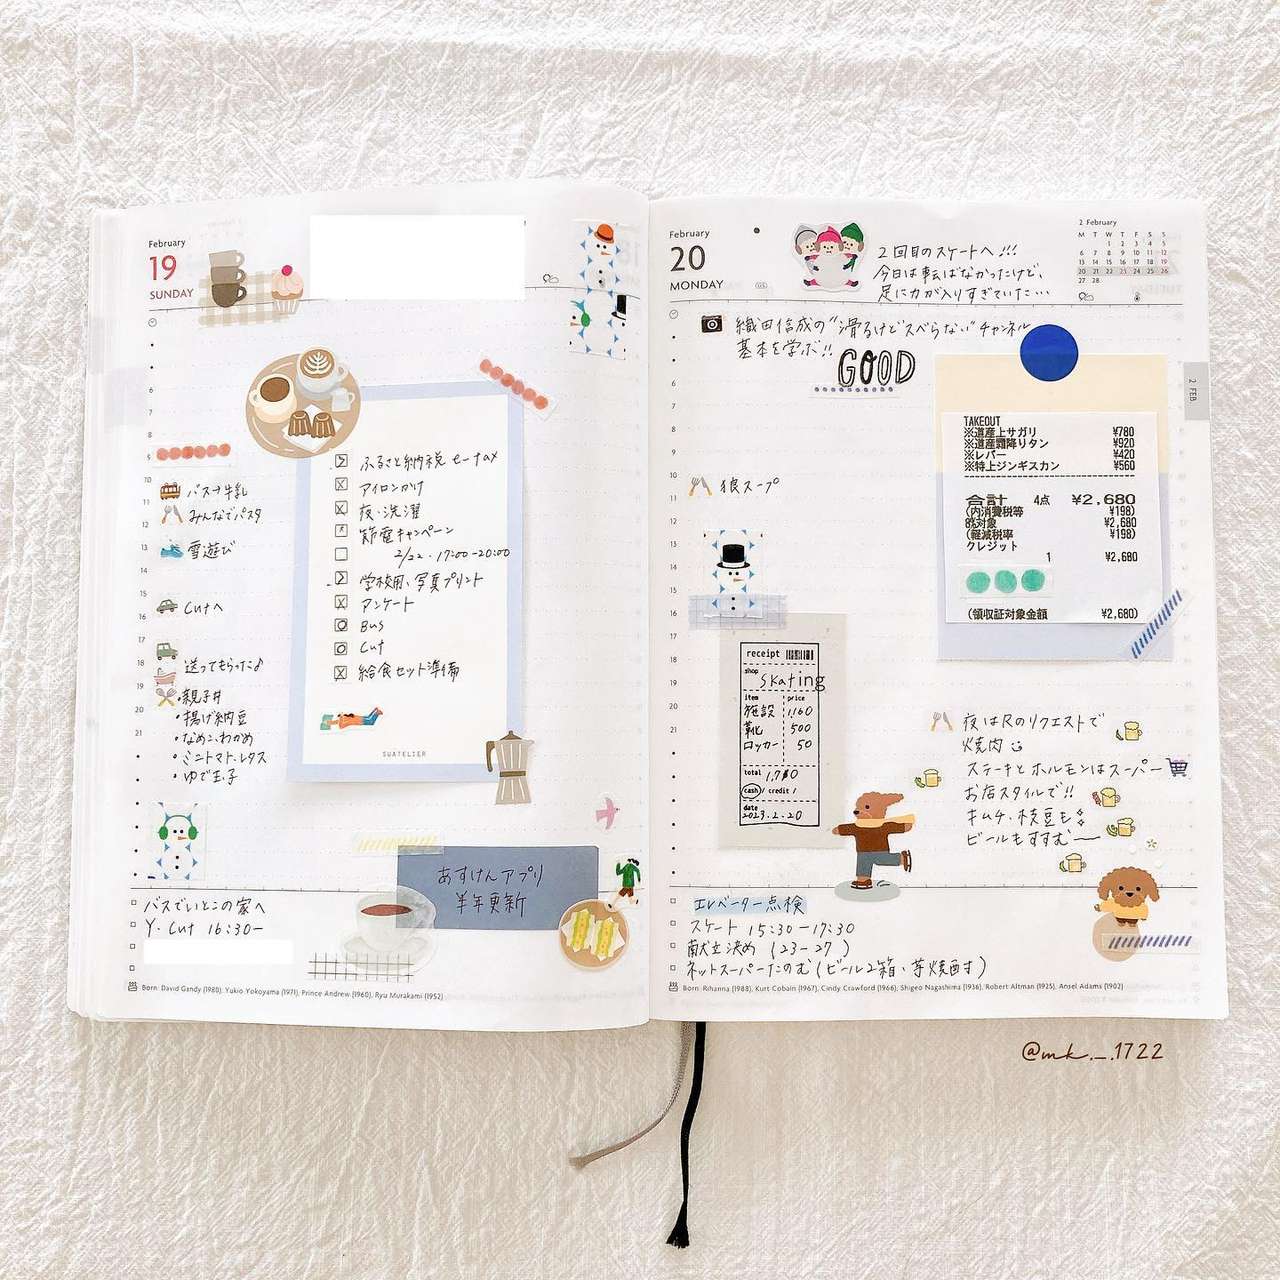 February
19
SUNDAY
6
7
8
9
10
11
12
13
14
15
16
17
18
19
20
21
バス→牛乳
みんなでパスタ
雪遊び
Cutへ
送ってもらった♪
・親子丼
・揚げ納豆
・なめこ、わかめ
・ミニトマト、レタス
・ゆで玉子
ふるさと納税 e-tax
アイロンがけ
夜・洗濯
節電キャンペーン
2/22・17:00-20:00
学校用、写真プリント
アンケート
Bus
Cut
給食セット準備
SUATELIER
あすけんアプリ
半年更新
バスでいとこの家へ
Y. Cut 16:30-
Born: David Gandy (1980), Yukio Yokoyama (1971), Prince Andrew (1960), Ryu Murakami (1952)
February
20
MONDAY
US
2回目のスケートへ!!!
今日は転ばなかったけど、
足に力が入りすぎていた…
2 February
M T W T F S S
1 2 3 4 5
6 7 8 9 10 11 12
13 14 15 16 17 18 19
20 21 22 23 24 25 26
27 28
2 FEB
織田信成の"滑るけどスベらない"チャンネル
基本を学ぶ!!
GOOD
6
7
8
9
10
11
12
13
14
15
16
17
18
19
20
21
狼スープ
TAKEOUT
※道産上サガリ ¥780
※道産霜降りタン ¥920
※レバー ¥420
※特上ジンギスカン ¥560
合計 4点 ¥2,680
(内消費税等 ¥198)
8%対象 ¥2,680
(軽減税率 ¥198)
クレジット
1 ¥2,680
(領収証対象金額 ¥2,680)
receipt
shop
skating
item price
施設 1,160
靴 500
ロッカー 50
total 1,710
cash / credit /
date
2023.2.20
夜はRのリクエストで
焼肉
ステーキとホルモンはスーパー
お店スタイルで!!
キムチ、枝豆も
ビールもすすむ〜
エレベーター点検
スケート 15:30-17:30
献立決め (23-27)
ネットスーパーたのむ (ビール2箱、芋焼酎す)
Born: Rihanna (1988), Kurt Cobain (1967), Cindy Crawford (1966), Shigeo Nagashima (1936), Robert Altman (1925), Ansel Adams (1902)
@mk._.1722